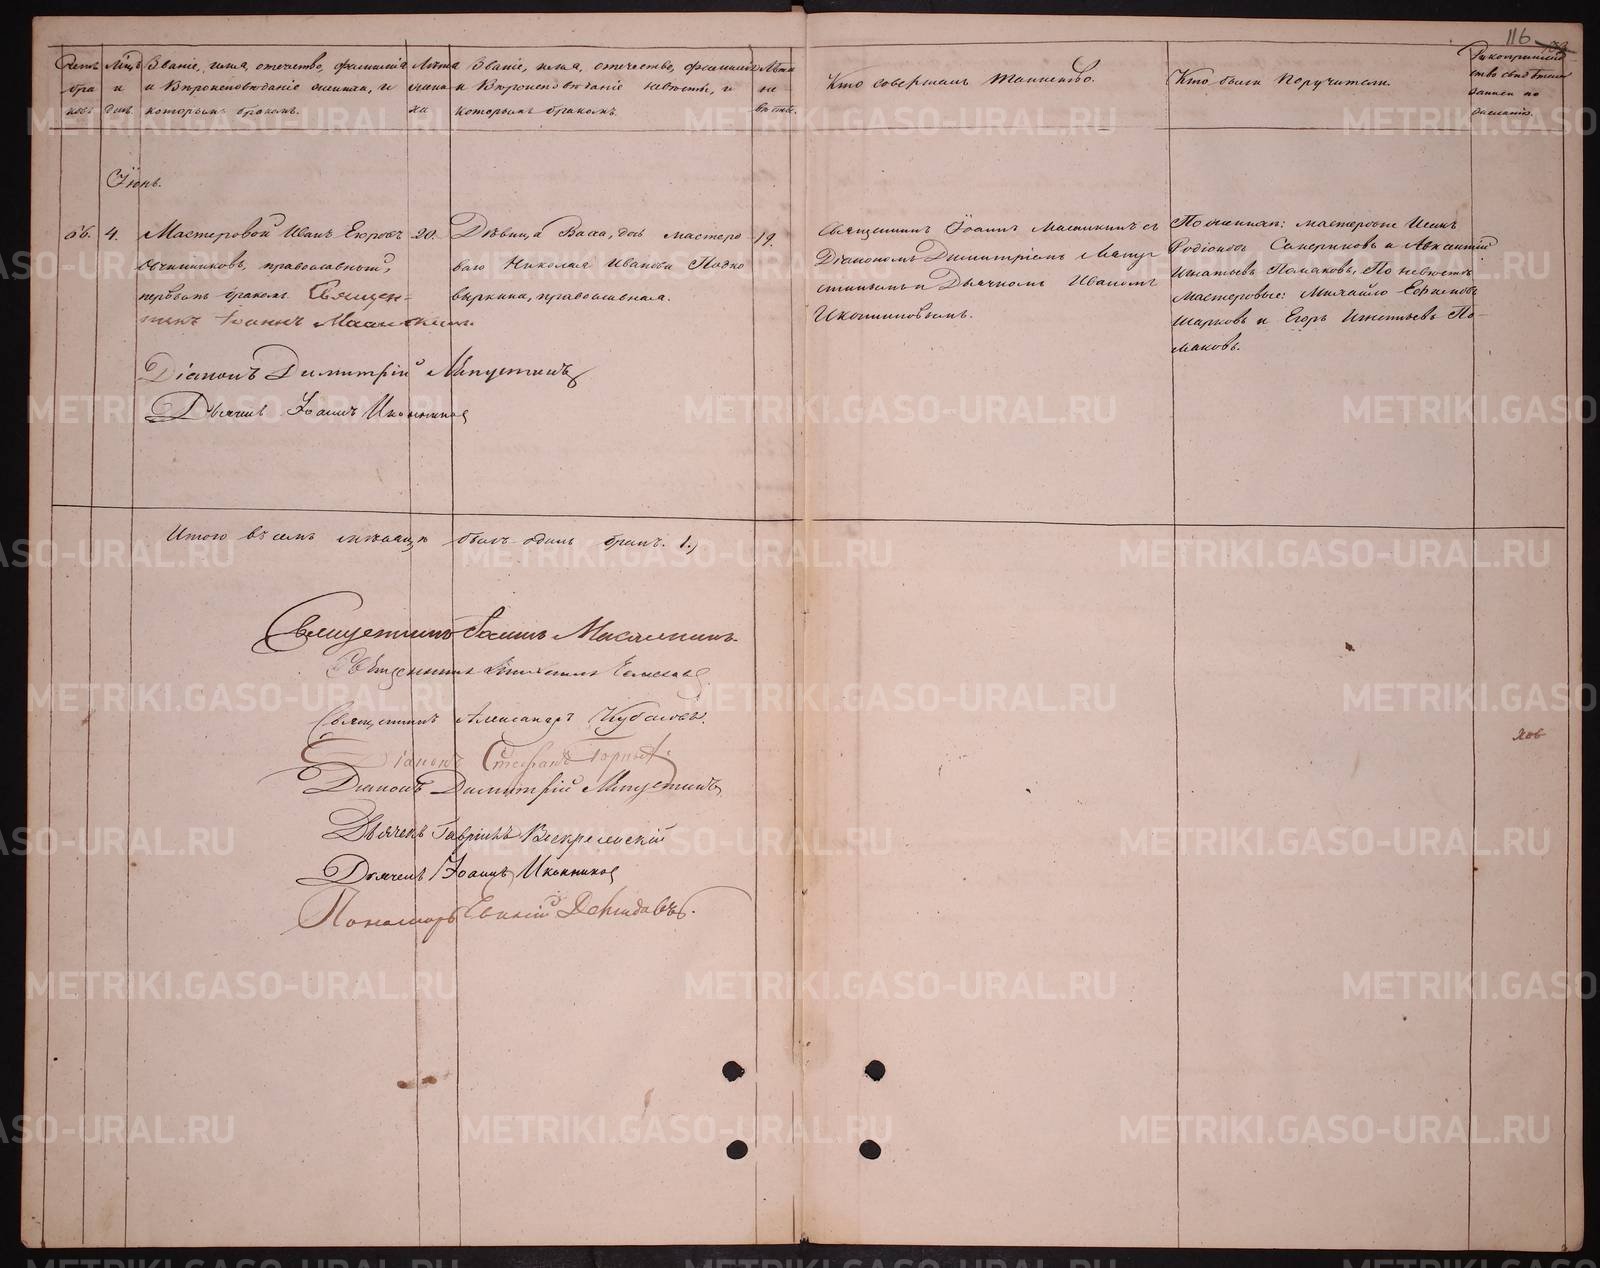 116
Счетъ браковъ
Мѣс. и день
Званіе, имя, отечество, фамилія
и Вѣроисповѣданіе жениха, и
которымъ бракомъ.
Лѣта
жениха
Званіе, имя, отечество, фамилія
и Вѣроисповѣданіе невѣсты, и
которымъ бракомъ.
Лѣта
не
вѣсты.
Кто совершалъ Таинство.
Кто были Поручители.
Рукоприклад
ство свидѣтелей
записи по
желанію.
Іюнь.
56.
4.
Мастеровой Иванъ Егоровъ
Овчинниковъ, православный,
первымъ бракомъ. Священ-
никъ Іоаннъ
Діаконъ Димитрій
Дьячекъ Іоаннъ Иконниковъ
20.
Дѣвица Васса, дочь мастеро
ваго Николая Иванова Подко
выркина, православная.
19.
Священникъ Іоаннъ съ
Діакономъ Димитріемъ
и Дьячкомъ Иваномъ
Иконниковымъ.
По женихѣ: мастеровые
Родіоновъ и Авксентій
Игнатьевъ Помаковъ, По невѣстѣ
Мастеровые: Михайло Ефимовъ
Шарковъ и Егоръ Игнатьевъ По-
маковъ.
Итого въ семъ мѣсяцѣ былъ одинъ бракъ. 1.
Священникъ Іоаннъ
Священникъ
Священникъ Александръ Кубасовъ.
Діаконъ Стефанъ
Діаконъ Димитрій
Дьячекъ Гавріилъ Воскресенскій
Дьячекъ Іоаннъ Иконниковъ
Пономарь Демидовъ.
METRIKI.GASO-URAL.RU